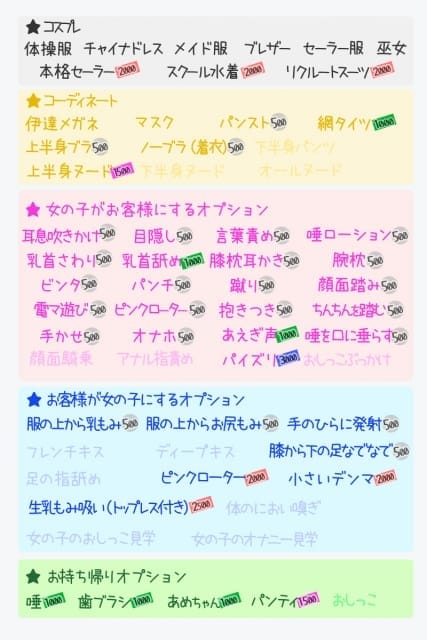 ★ コスプレ
体操服 チャイナドレス メイド服 ブレザー セーラー服 巫女
本格セーラー2000 スクール水着2000 リクルートスーツ2000
★ コーディネート
伊達メガネ マスク パンスト500 網タイツ1000
上半身ブラ500 ノーブラ(着衣)500 下半身パンツ
上半身ヌード1500 下半身ヌード オールヌード
★ 女の子がお客様にするオプション
耳息吹きかけ500 目隠し500 言葉責め500 唾ローション500
乳首さわり500 乳首舐め1000 膝枕耳かき500 腕枕500
ビンタ500 パンチ500 蹴り500 顔面踏み500
電マ遊び500 ピンクローター500 抱きつき500 ちんちんを踏む500
手かせ500 オナホ500 あえぎ声1000 唾を口に垂らす500
顔面騎乗 アナル指責め パイズリ3000 おしっこぶっかけ
★ お客様が女の子にするオプション
服の上から乳もみ500 服の上からお尻もみ500 手のひらに発射500
フレンチキス ディープキス 膝から下の足なでなで500
足の指舐め ピンクローター2000 小さいデンマ2000
生乳もみ吸い(トップレス付き)2500 体のにおい嗅ぎ
女の子のおしっこ見学 女の子のオナニー見学
★ お持ち帰りオプション
唾1000 歯ブラシ1000 あめちゃん1000 パンティ1500 おしっこ